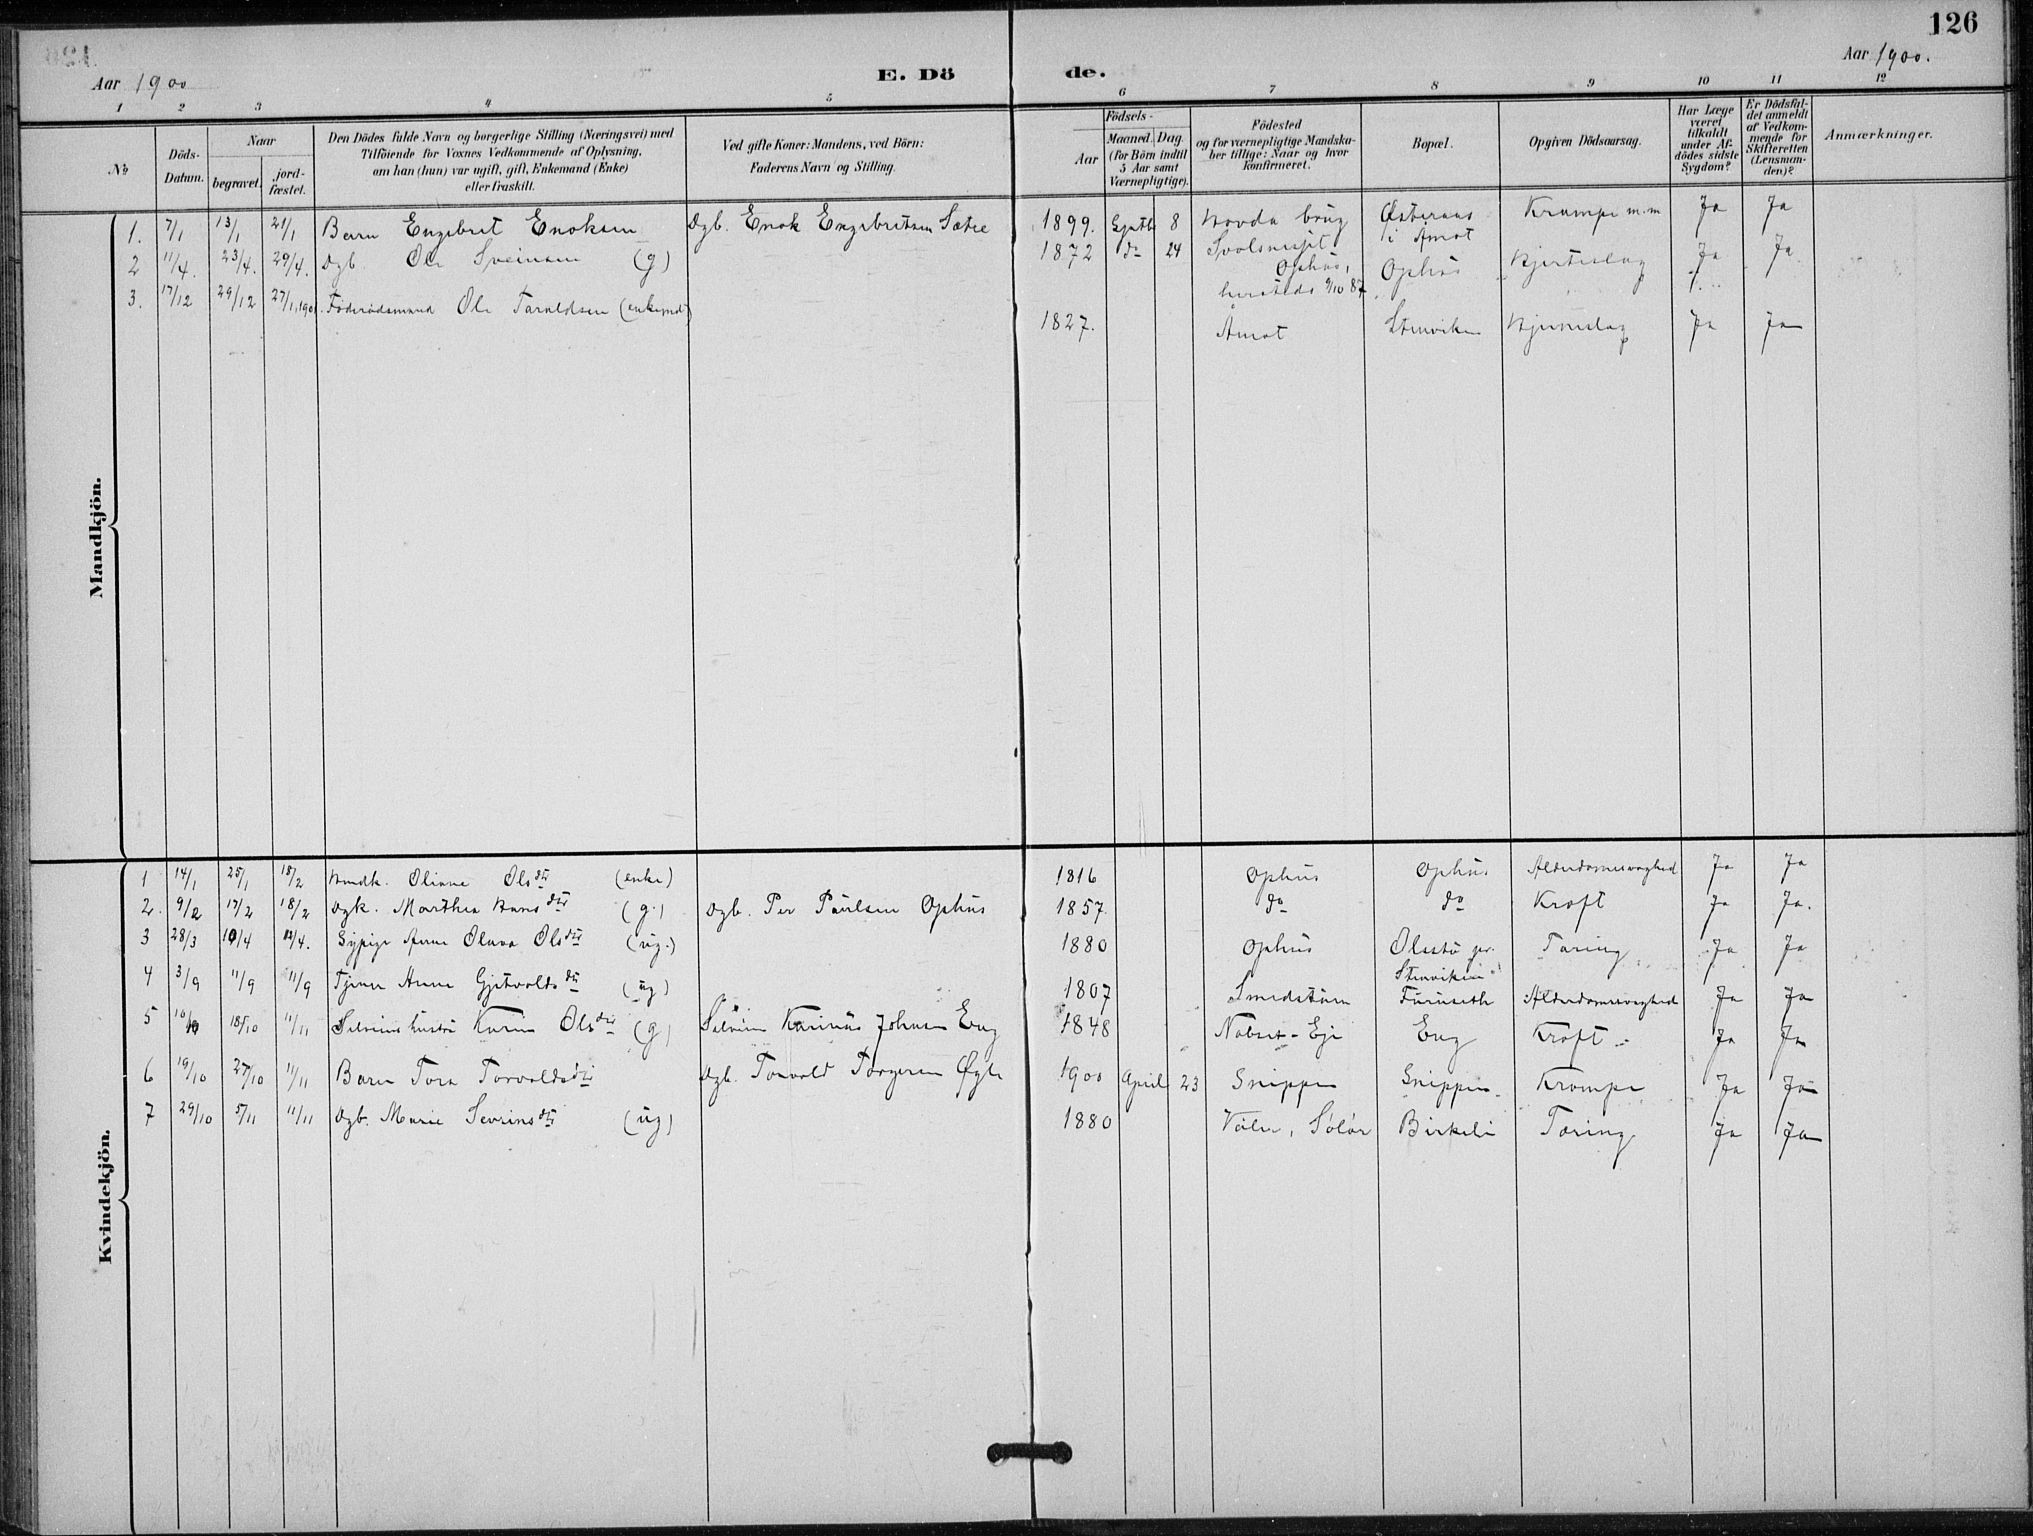 126
Aar 1900
E. Dö de.
Aar 1900.
1 2 3 4 5 6 7 8 9 10 11 12
No
Döds-Datum.
Naar
begravet.
jord-fæstet.
Den Dödes fulde Navn og borgerlige Stilling (Næringsvei) med
Tilföiende for Voxnes Vedkommende af Oplysning,
om han (hun) var ugift, gift, Enkemand (Enke)
eller fraskilt.
Ved gifte Koner: Mandens, ved Börn:
Faderens Navn og Stilling.
Aar
Födsels-
Maaned. Dag.
(for Börn indtil
5 Aar samt
Værnepligtige).
Födested
og for værnepligtige Mandska-
ber tillige: Naar og hvor
konfirmeret.
Bopæl.
Opgiven Dödsaarsag.
Har Læge
været
tilkaldt
under Af-
dödes sidste
Sygdom?
Er Dödsfal-
det anmeldt
af Vedkom-
mende for
Skifteretten
(Lensman-
den)?
Anmærkninger.
Mandkjön.
1. 7/1 13/1 21/1 Barn Engebret Enoksen Dgb. Enok Engebretsen Sætre 1899. Septb 8 Hovda brug Østeraas i Amot Krampe m.m Ja Ja
2 11/4. 23/4. 29/4. Dgb. Ole Sveinsen (g) 1872 do 24 Ophus, Ophus Hjerteslag Ja Ja.
hersteds 9/10 87
3. 17/12 29/12 27/1 1901. Föderaadsmand Ole Taraldsen (enkemd) 1827. Amot Stenviken Hjerneslag Ja Ja
Kvindekjön.
1 14/1 25/1 18/2 Oliane Olsdtr (enke) 1816 Ophus Ophus Alderdomssvaghed Ja Ja
2. 9/2 17/2 18/2 Dgk. Marthea Hansdtr (g.) Dgb. Per Paulsen Ophus 1857. do do Kræft Ja Ja.
3 28/3 10/4 /4. Sypige Anne Olava Olsdtr (ug.) 1880 Ophus Olsstu pr. Stenviken Tæring Ja Ja
4 3/9 11/9 11/9 Tjener Anne Gjetvoldsdtr (ug) 1807 Smedstuen Furuseth Alderdomssvaghed Ja Ja
5 10/10 18/10 11/11 Selveiers hustru Karen Olsdtr (g) Selveier Karinus Johnsen Eng 1848 Nabset-Eje Eng Kræft Ja Ja
6 19/10 27/10 11/11 Barn Tora Torvaldsdtr Dgb. Torvald Torgersen Øgle 1900 April 23 Snippen Snippen Krampe Ja Ja
7 29/10 5/11 11/11 Dgb. Marie Sevrinsdtr (ug) 1880 Våler, Solør Birkeli Tæring Ja Ja